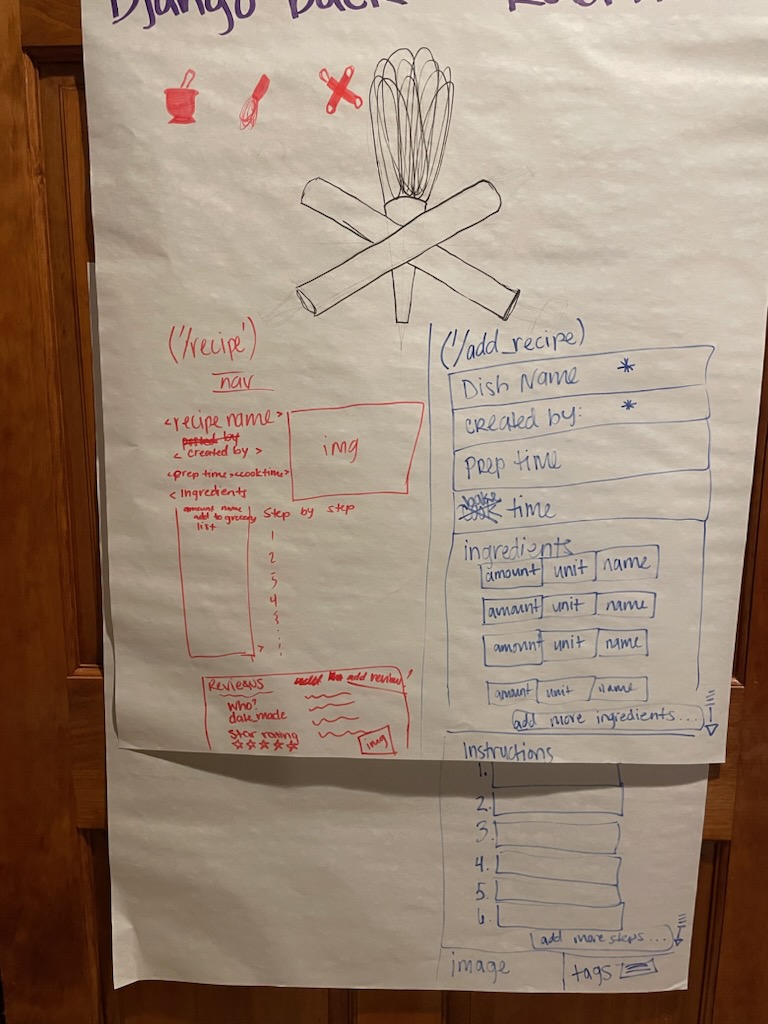 Django Back
('/recipe')
nav
<recipe name>
posted by
< created by >
<prep time><cooktime>
< Ingredients
amount name
add to grocery
list
>
img
Step by step
1
2
3
4
Reviews
add review
who?
date made
Star rating
img
('/add_recipe)
Dish Name *
created by: *
Prep time
time
ingredients
amount unit name
amount unit name
amount unit name
amount unit name
add more ingredients...
Instructions
1.
2.
3.
4.
5.
6.
add more steps...
image
tags